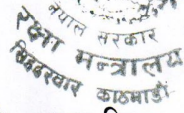 नेपाल सरकार
रक्षा मन्त्रालय
सिंहदरवार काठमाडौं